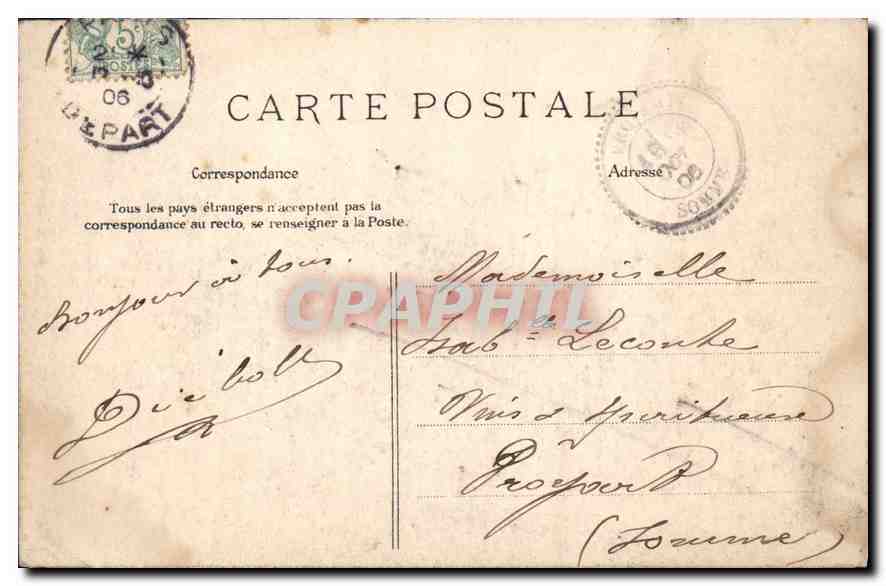 5c
POSTES
3 *
06
DEPART
CARTE POSTALE
Correspondance
Adresse
OCT
06
SOMME
Tous les pays étrangers n'acceptent pas la
correspondance au recto, se renseigner à la Poste.
Bonjour à tous.
Diébolt
CPAPHIL
Mademoiselle
Isabelle Leconte
Vins & Spiritueux
Proyart
(Somme)